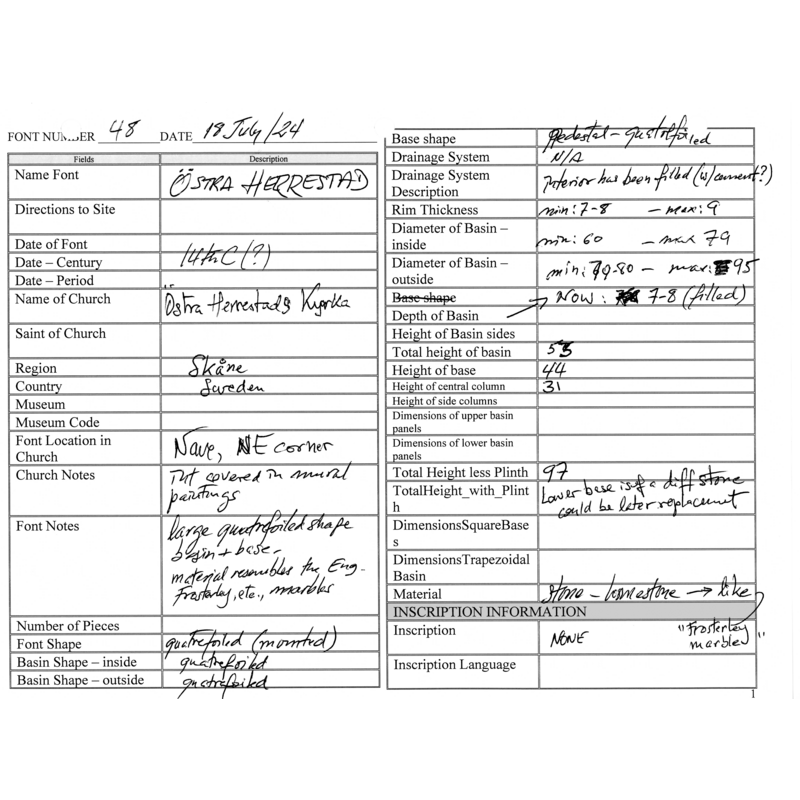 FONT NUMBER 48 DATE 18 July/24
Fields Description
Name Font ÖSTRA HERRESTAD
Directions to Site
Date of Font
Date – Century 14thC (?)
Date – Period
Name of Church Östra Herrestads Kyrka
Saint of Church
Region Skåne
Country Sweden
Museum
Museum Code
Font Location in
Church
Nave, NE corner
Church Notes
Int covered in mural
paintings
Font Notes
large quatrefoiled shape
basin + base –
material resembles the Eng-
Frosterley, etc., marbles
Number of Pieces
Font Shape quatrefoiled (mounted)
Basin Shape – inside quatrefoiled
Basin Shape – outside quatrefoiled
Base shape pedestal – quatrefoiled
Drainage System N/A
Drainage System
Description
Interior has been filled (w/cement?)
Rim Thickness min: 7-8 – max: 9
Diameter of Basin –
inside
min: 60 – max 79
Diameter of Basin –
outside
min: 79-80 – max: 95
Base shape
Depth of Basin
Now: 7-8 (filled)
Height of Basin sides
Total height of basin 53
Height of base 44
Height of central column 31
Height of side columns
Dimensions of upper basin
panels
Dimensions of lower basin
panels
Total Height less Plinth 97
TotalHeight_with_Plint
h
Lower base is of a diff stone
could be later replacement
DimensionsSquareBase
s
DimensionsTrapezoidal
Basin
Material stone – limestone → like
"Frosterley
marble"
INSCRIPTION INFORMATION
Inscription NONE
Inscription Language
1